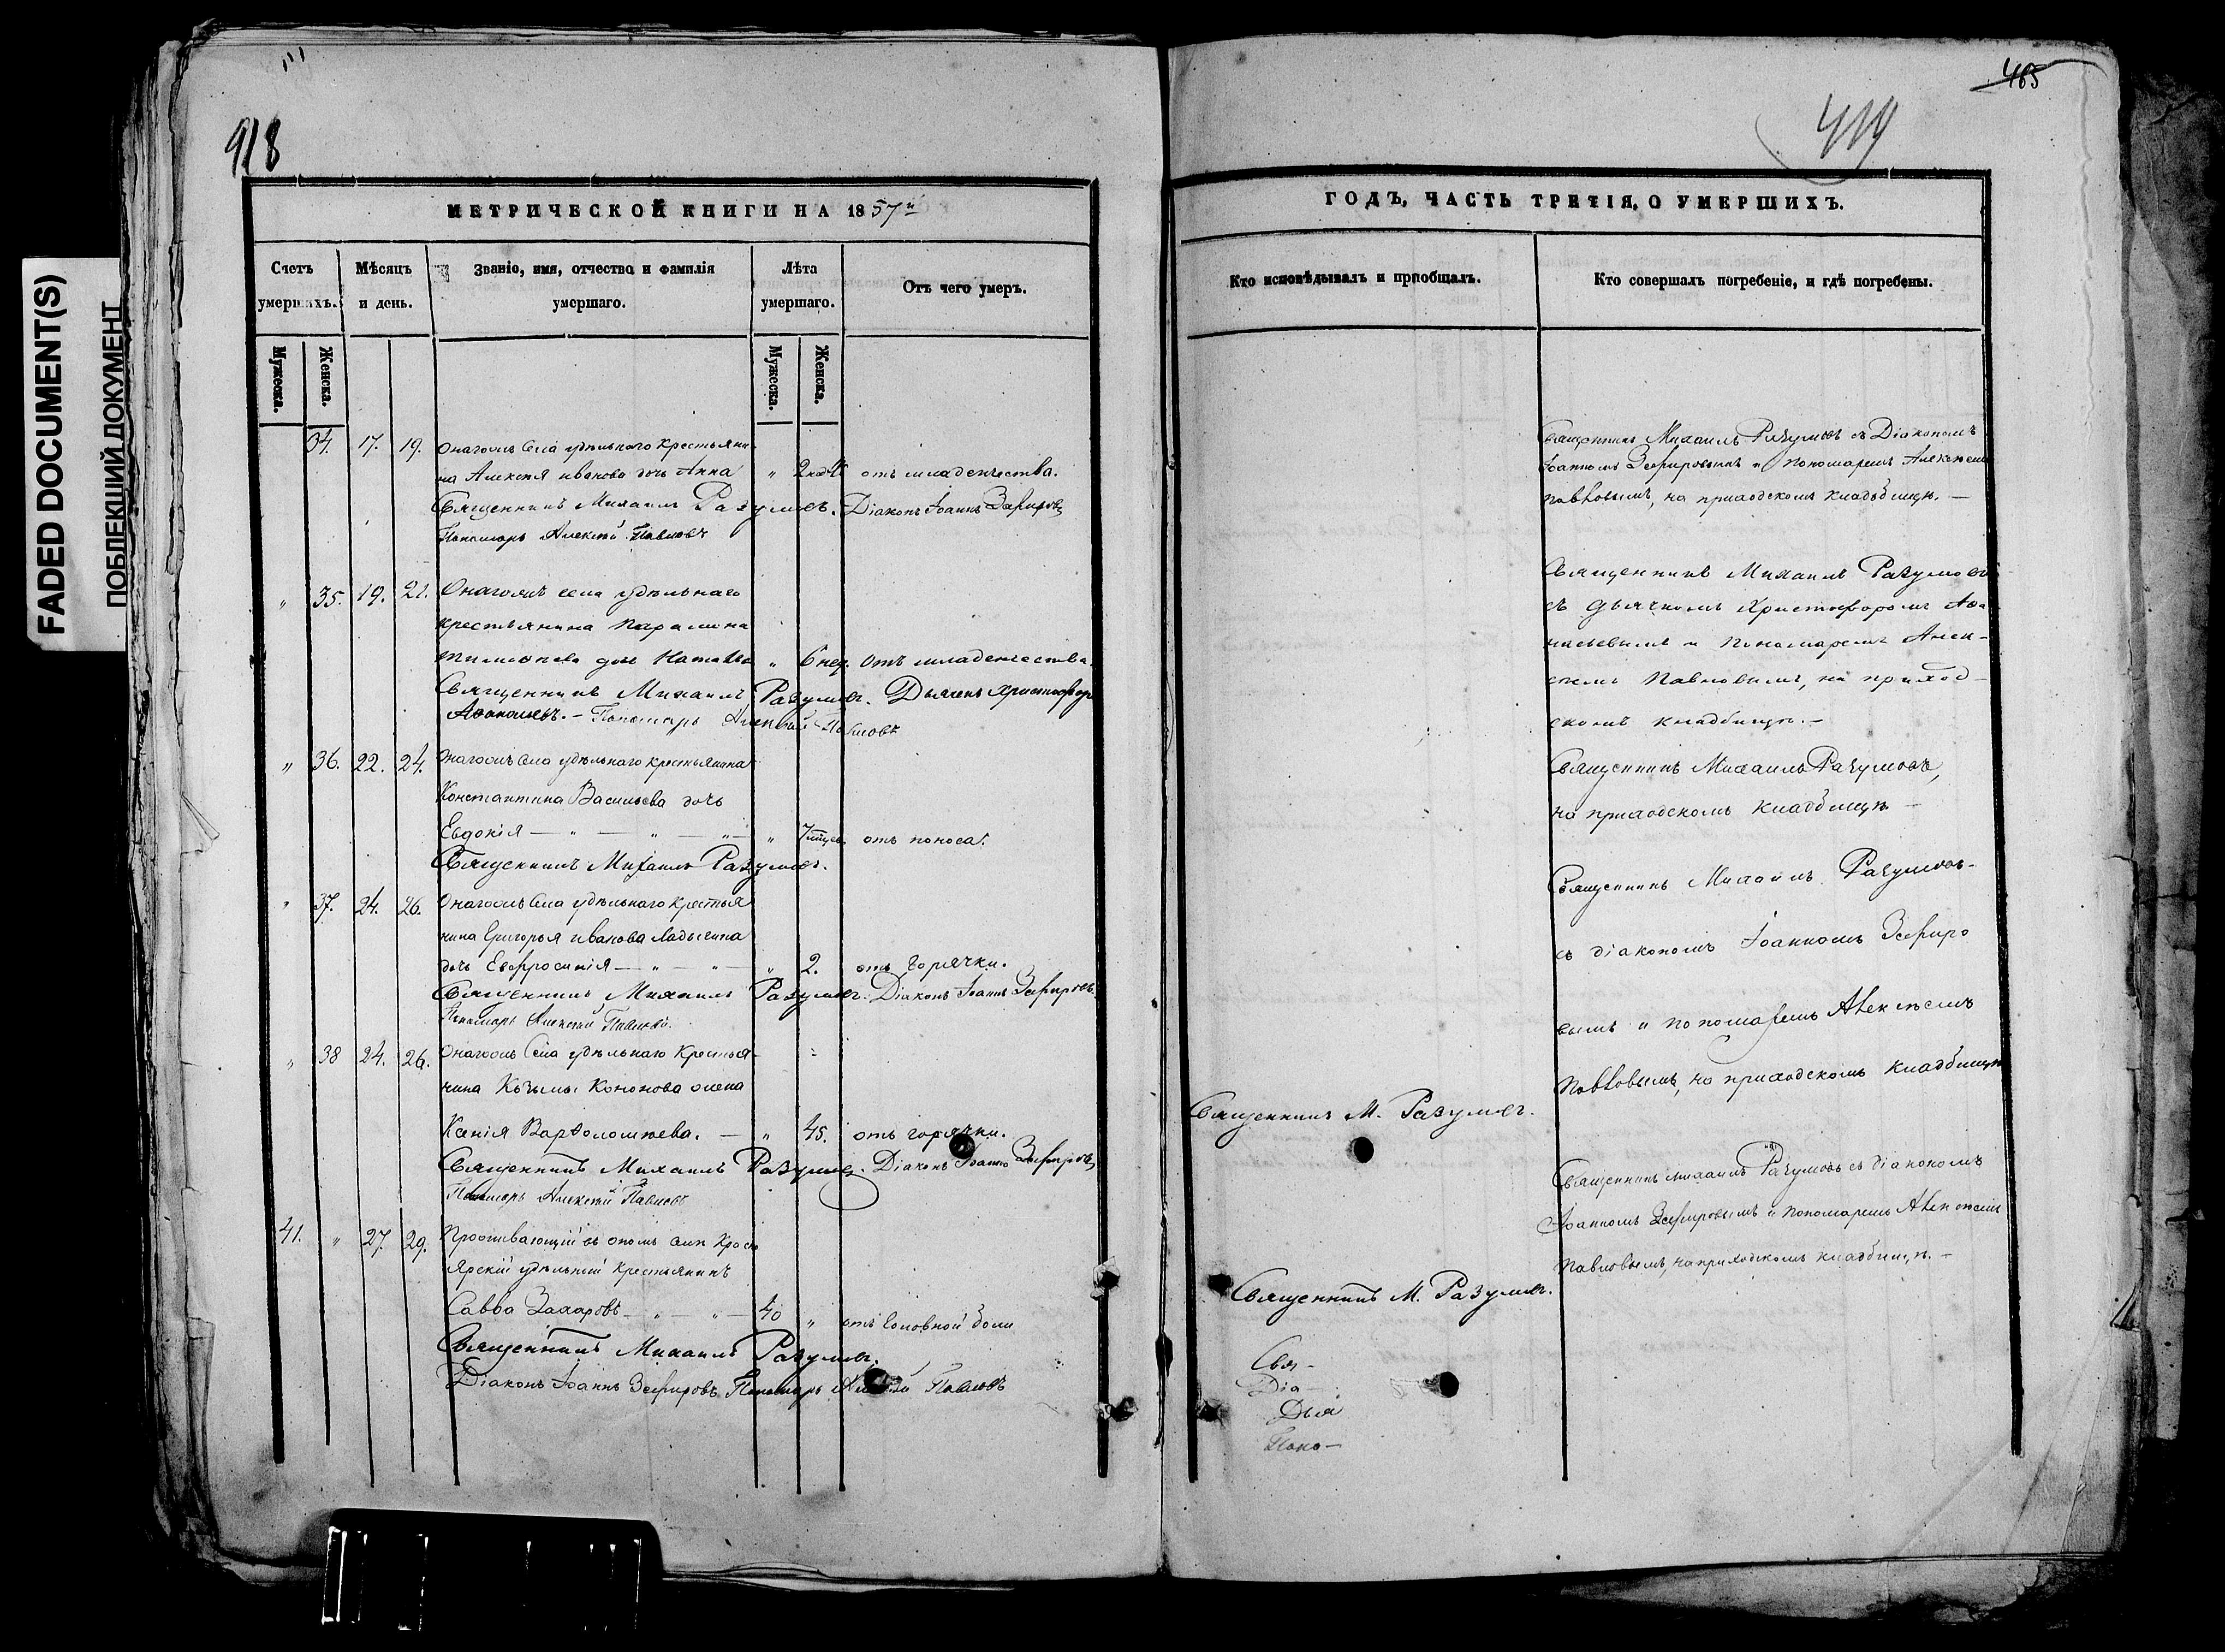 FADED DOCUMENT(S)
ПОБЛЕКШИЙ ДОКУМЕНТ
918
МЕТРИЧЕСКОЙ КНИГИ НА 1857й
Счетъ умершихъ.
Мѣсяцъ и день.
Званіе, имя, отчество и фамилія умершаго.
Лѣта умершаго.
Отъ чего умеръ.
Мужеска.
Женска.
Мужеска.
Женска.
34. 17. 19. Онагожъ села удѣльнаго крестьяни
на Алексѣя иванова дочь Анна " 2 отъ младенчества.
Священникъ Михаилъ Разумовъ. Діаконъ Іоаннъ Зефировъ
Пономарь Алексѣй Павловъ
" 35. 19. 21. Онагожъ села удѣльнаго
крестьянина
дочь " 6 нед. отъ младенчества.
Священникъ Михаилъ Разумовъ. Дьячекъ Христофоръ
Аѳанасьевъ. – Пономарь Алексѣй Павловъ
" 36. 22. 24. Онагожъ села удѣльнаго крестьянина
Константина Васильева дочь
Евдокія — " — " — " — " отъ поноса.
Священникъ Михаилъ Разумовъ.
" 37. 24. 26. Онагожъ села удѣльнаго крестья
нина Григорья иванова Ладыгина
дочь Евфросинія — " — " — " 2. отъ горячки.
Священникъ Михаилъ Разумовъ. Діаконъ Іоаннъ Зефировъ.
Пономарь Алексѣй Павловъ.
" 38 24. 26. Онагожъ села удѣльнаго крестья-
нина Козьмы Кононова жена
Ксенія Варѳоломѣева. — " 45. отъ горячки.
Священникъ Михаилъ Разумовъ. Діаконъ Іоаннъ Зефировъ
Пономарь Алексѣй Павловъ
41. " 27. 29. Проживающій въ ономъ селѣ Красно
Ярскій удѣльный крестьянинъ
Савва Захаровъ — " — " — 40 " отъ головной боли
Священникъ Михаилъ Разумовъ.
Діаконъ Іоаннъ Зефировъ Пономарь Алексѣй Павловъ
465
419
ГОДЪ, ЧАСТЬ ТРЕТІЯ, О УМЕРШИХЪ.
Кто исповѣдывалъ и пріобщалъ.
Кто совершалъ погребеніе, и гдѣ погребены.
Священникъ Михаилъ Разумовъ съ Діакономъ
Іоанномъ Зефировымъ и пономаремъ Алексѣемъ
Павловымъ, на приходскомъ кладбищѣ. —
Священникъ Михаилъ Разумовъ
съ дьячкомъ Христофоромъ Аѳа
насьевымъ и пономаремъ Алек-
сѣемъ Павловымъ, на приход-
скомъ кладбищѣ. —
Священникъ Михаилъ Разумовъ,
на приходскомъ кладбищѣ —
Священникъ Михаилъ Разумовъ-
съ діакономъ Іоанномъ Зефиро
вымъ и пономаремъ Алексѣемъ
Павловымъ, на приходскомъ кладбищѣ
Священникъ М. Разумовъ.
Священникъ Михаилъ Разумовъ съ діакономъ
Іоанномъ Зефировымъ и пономаремъ Алексѣемъ
Павловымъ, на приходскомъ кладбищѣ. —
Священникъ М. Разумовъ.
Свя-
Діа-
Дья
Поно-